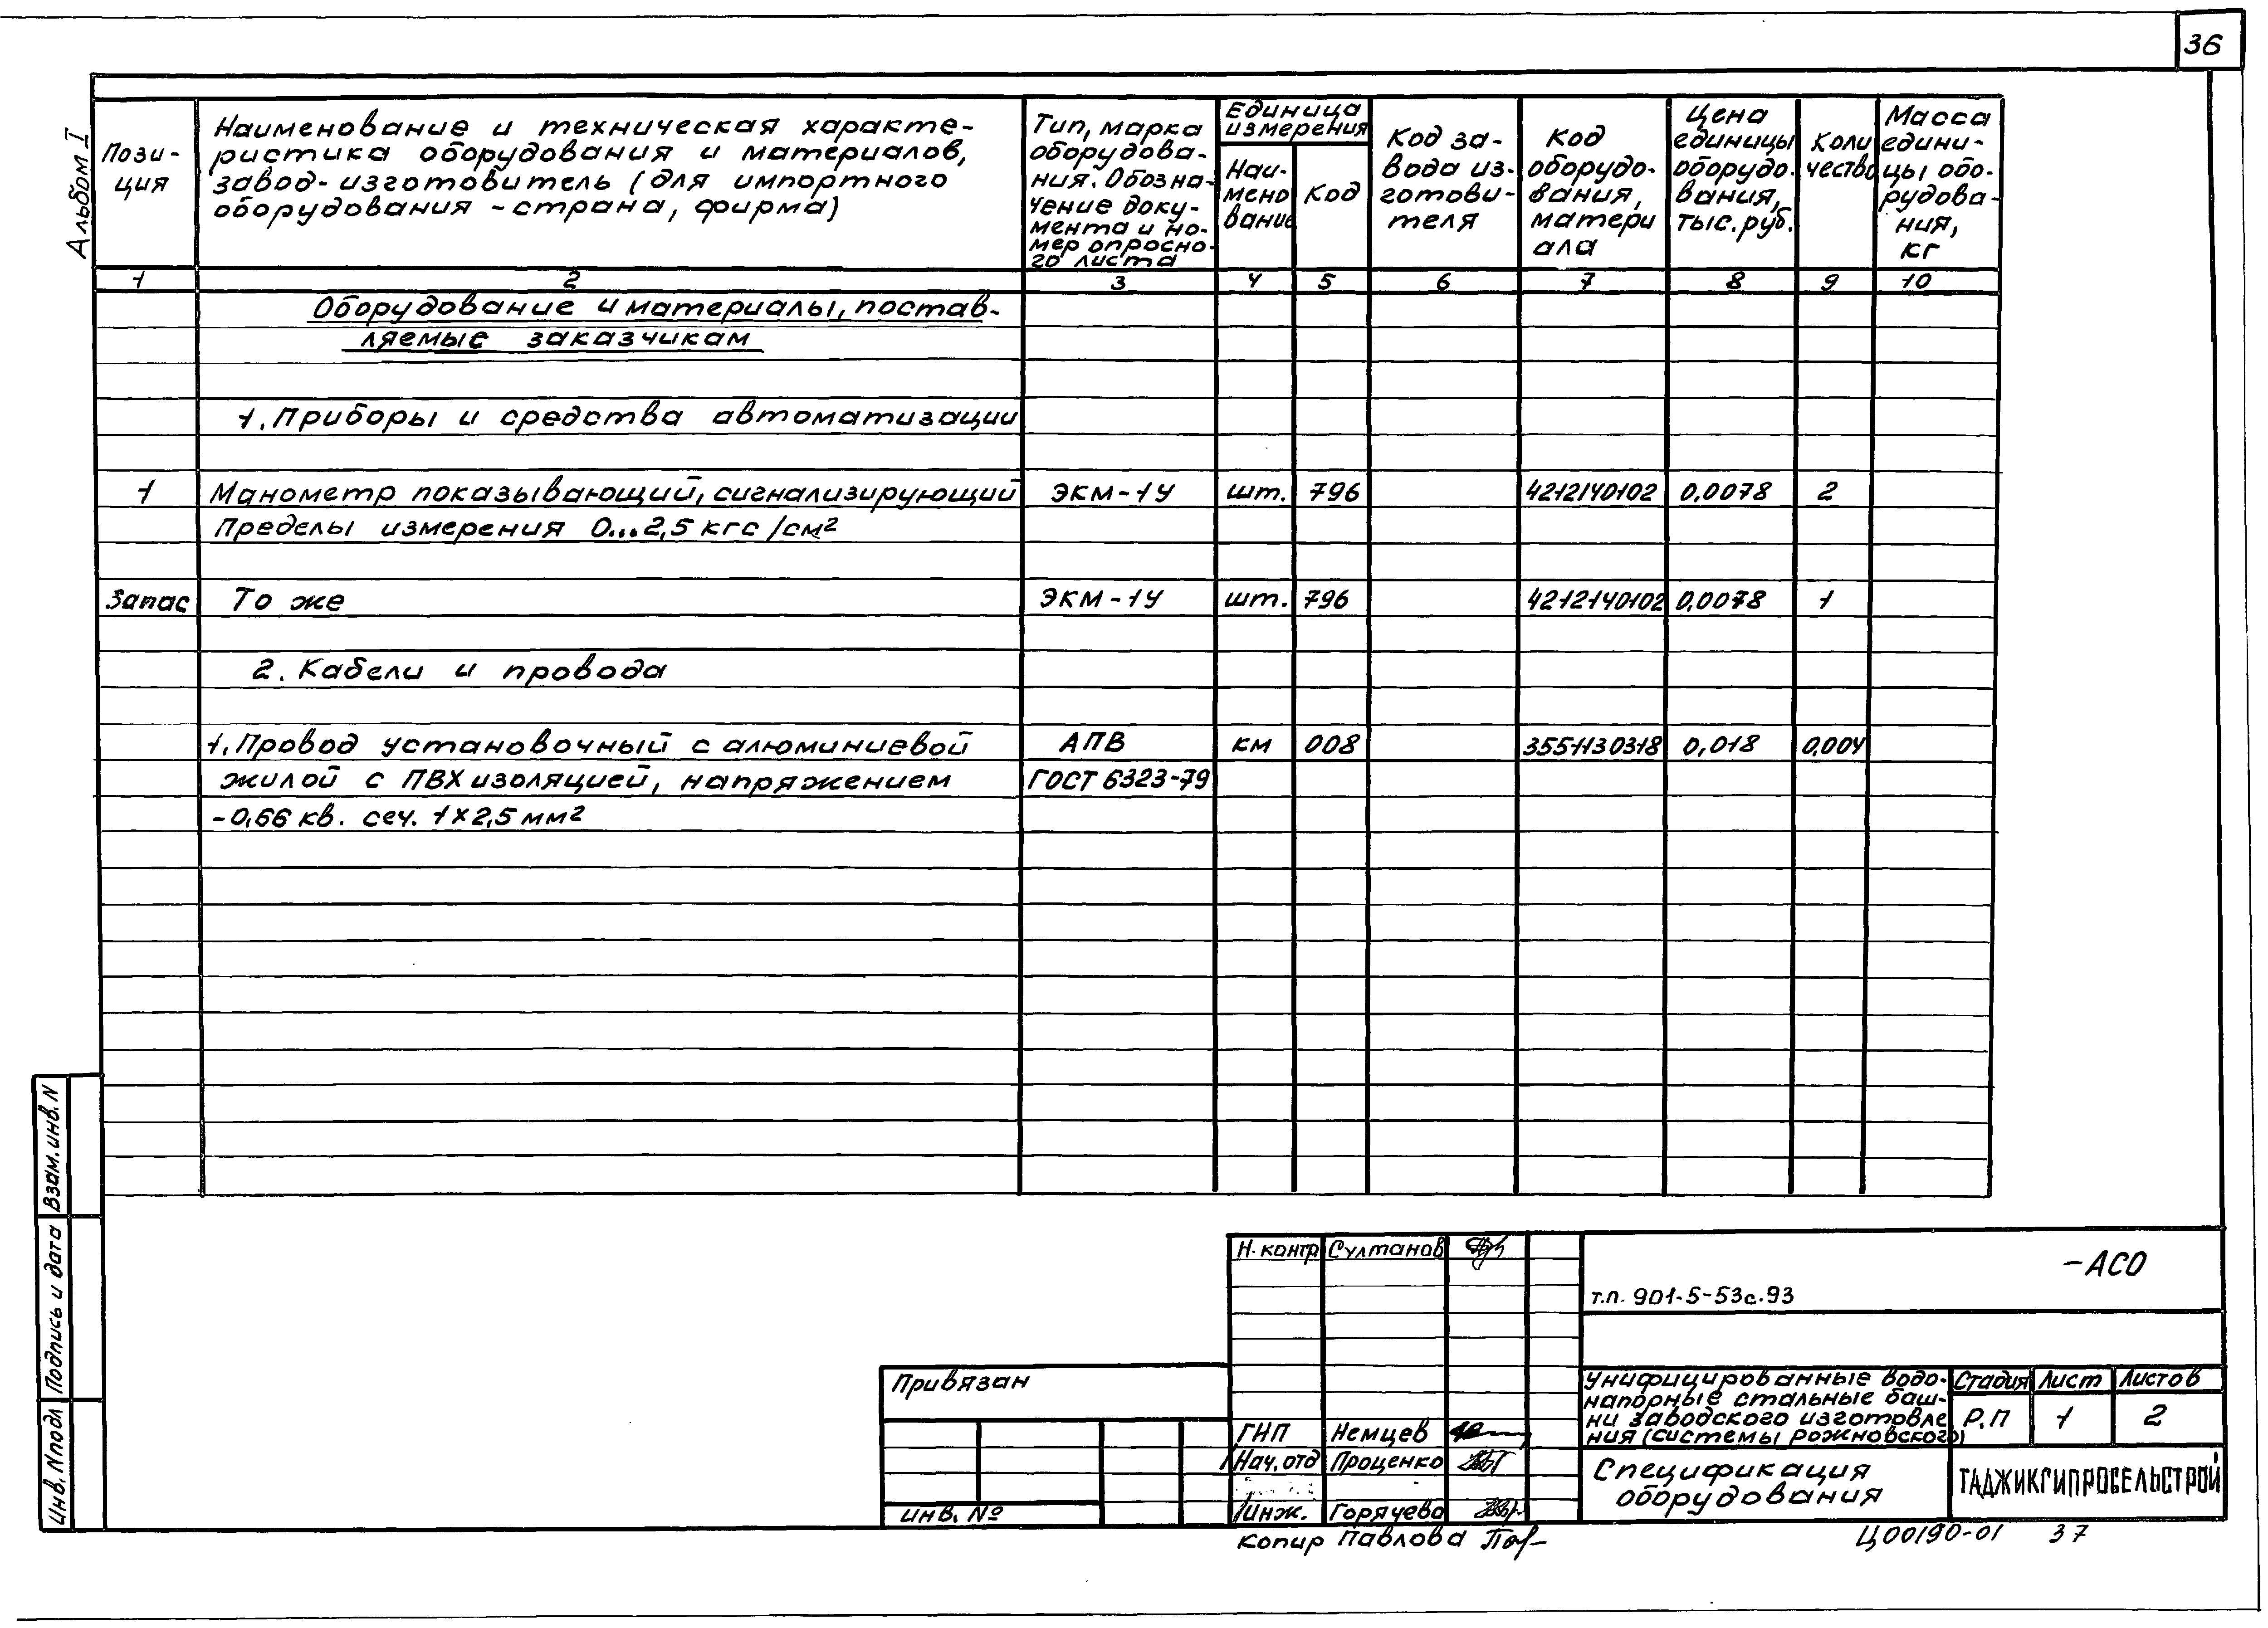 36
Альбом I
Пози-
ция
Наименование и техническая характе-
ристика оборудования и материалов,
завод-изготовитель (для импортного
оборудования - страна, фирма)
Тип, марка
оборудова-
ния. Обозна-
чение доку-
мента и но-
мер опросно-
го листа
Единица
измерения
Наи-
мено
вание
Код
Код за-
вода из-
готови-
теля
Код
оборудо-
вания,
матери
ала
Цена
единицы
оборудо-
вания,
тыс. руб.
Коли
чество
Масса
едини-
цы обо-
рудова-
ния,
кг
1 2 3 4 5 6 7 8 9 10
Оборудование и материалы, постав-
ляемые заказчикам
1. Приборы и средства автоматизации
1 Манометр показывающий, сигнализирующий ЭКМ-1У шт. 796 4212140102 0,0078 2
Пределы измерения 0...2,5 кгс/см²
Запас То же ЭКМ-1У шт. 796 4212140102 0,0078 1
2. Кабели и провода
1. Провод установочный с алюминиевой АПВ км 008 3551130318 0,018 0,004
жилой с ПВХ изоляцией, напряжением ГОСТ 6323-79
-0,66 кв. сеч. 1х2,5 мм²
Взам. инв. N
Подпись и дата
Инв. N подл
Н. контр Султанов
-АСО
т.п. 901-5-53с.93
Привязан
Инв. №
ГНП Немцев
Нач. отд Проценко
Инж. Горячева
Унифицированные водо-
напорные стальные баш-
ни заводского изготовле
ния (системы Рожновского)
Стадия Лист Листов
Р.П 1 2
Спецификация
оборудования
ТАДЖИКГИПРОСЕЛЬСТРОЙ
Копир Павлова
Ц00190-01 37